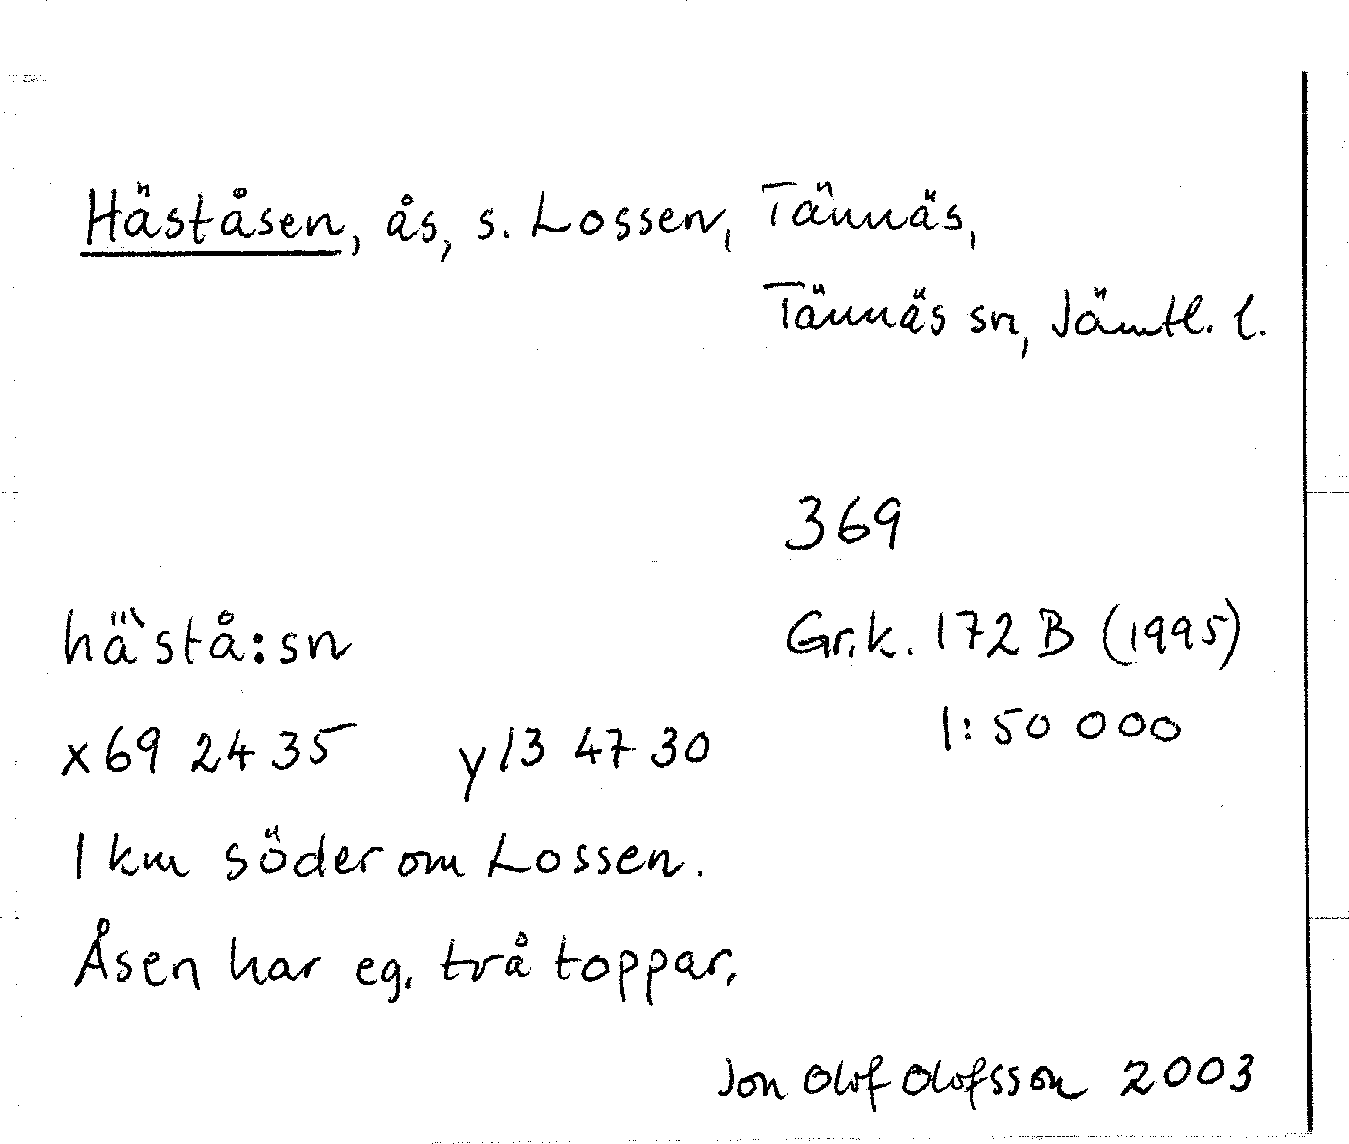 Häståsen, ås, s. Lossen, Tännäs,
Tännäs sn, Jämtl. l.
369
hä̀stå:sn
Gr.k. 172 B (1995)
x 69 24 35 y 13 47 30
1:50 000
1 km söder om Lossen.
Åsen har eg. två toppar.
Jon Olof Olofsson 2003